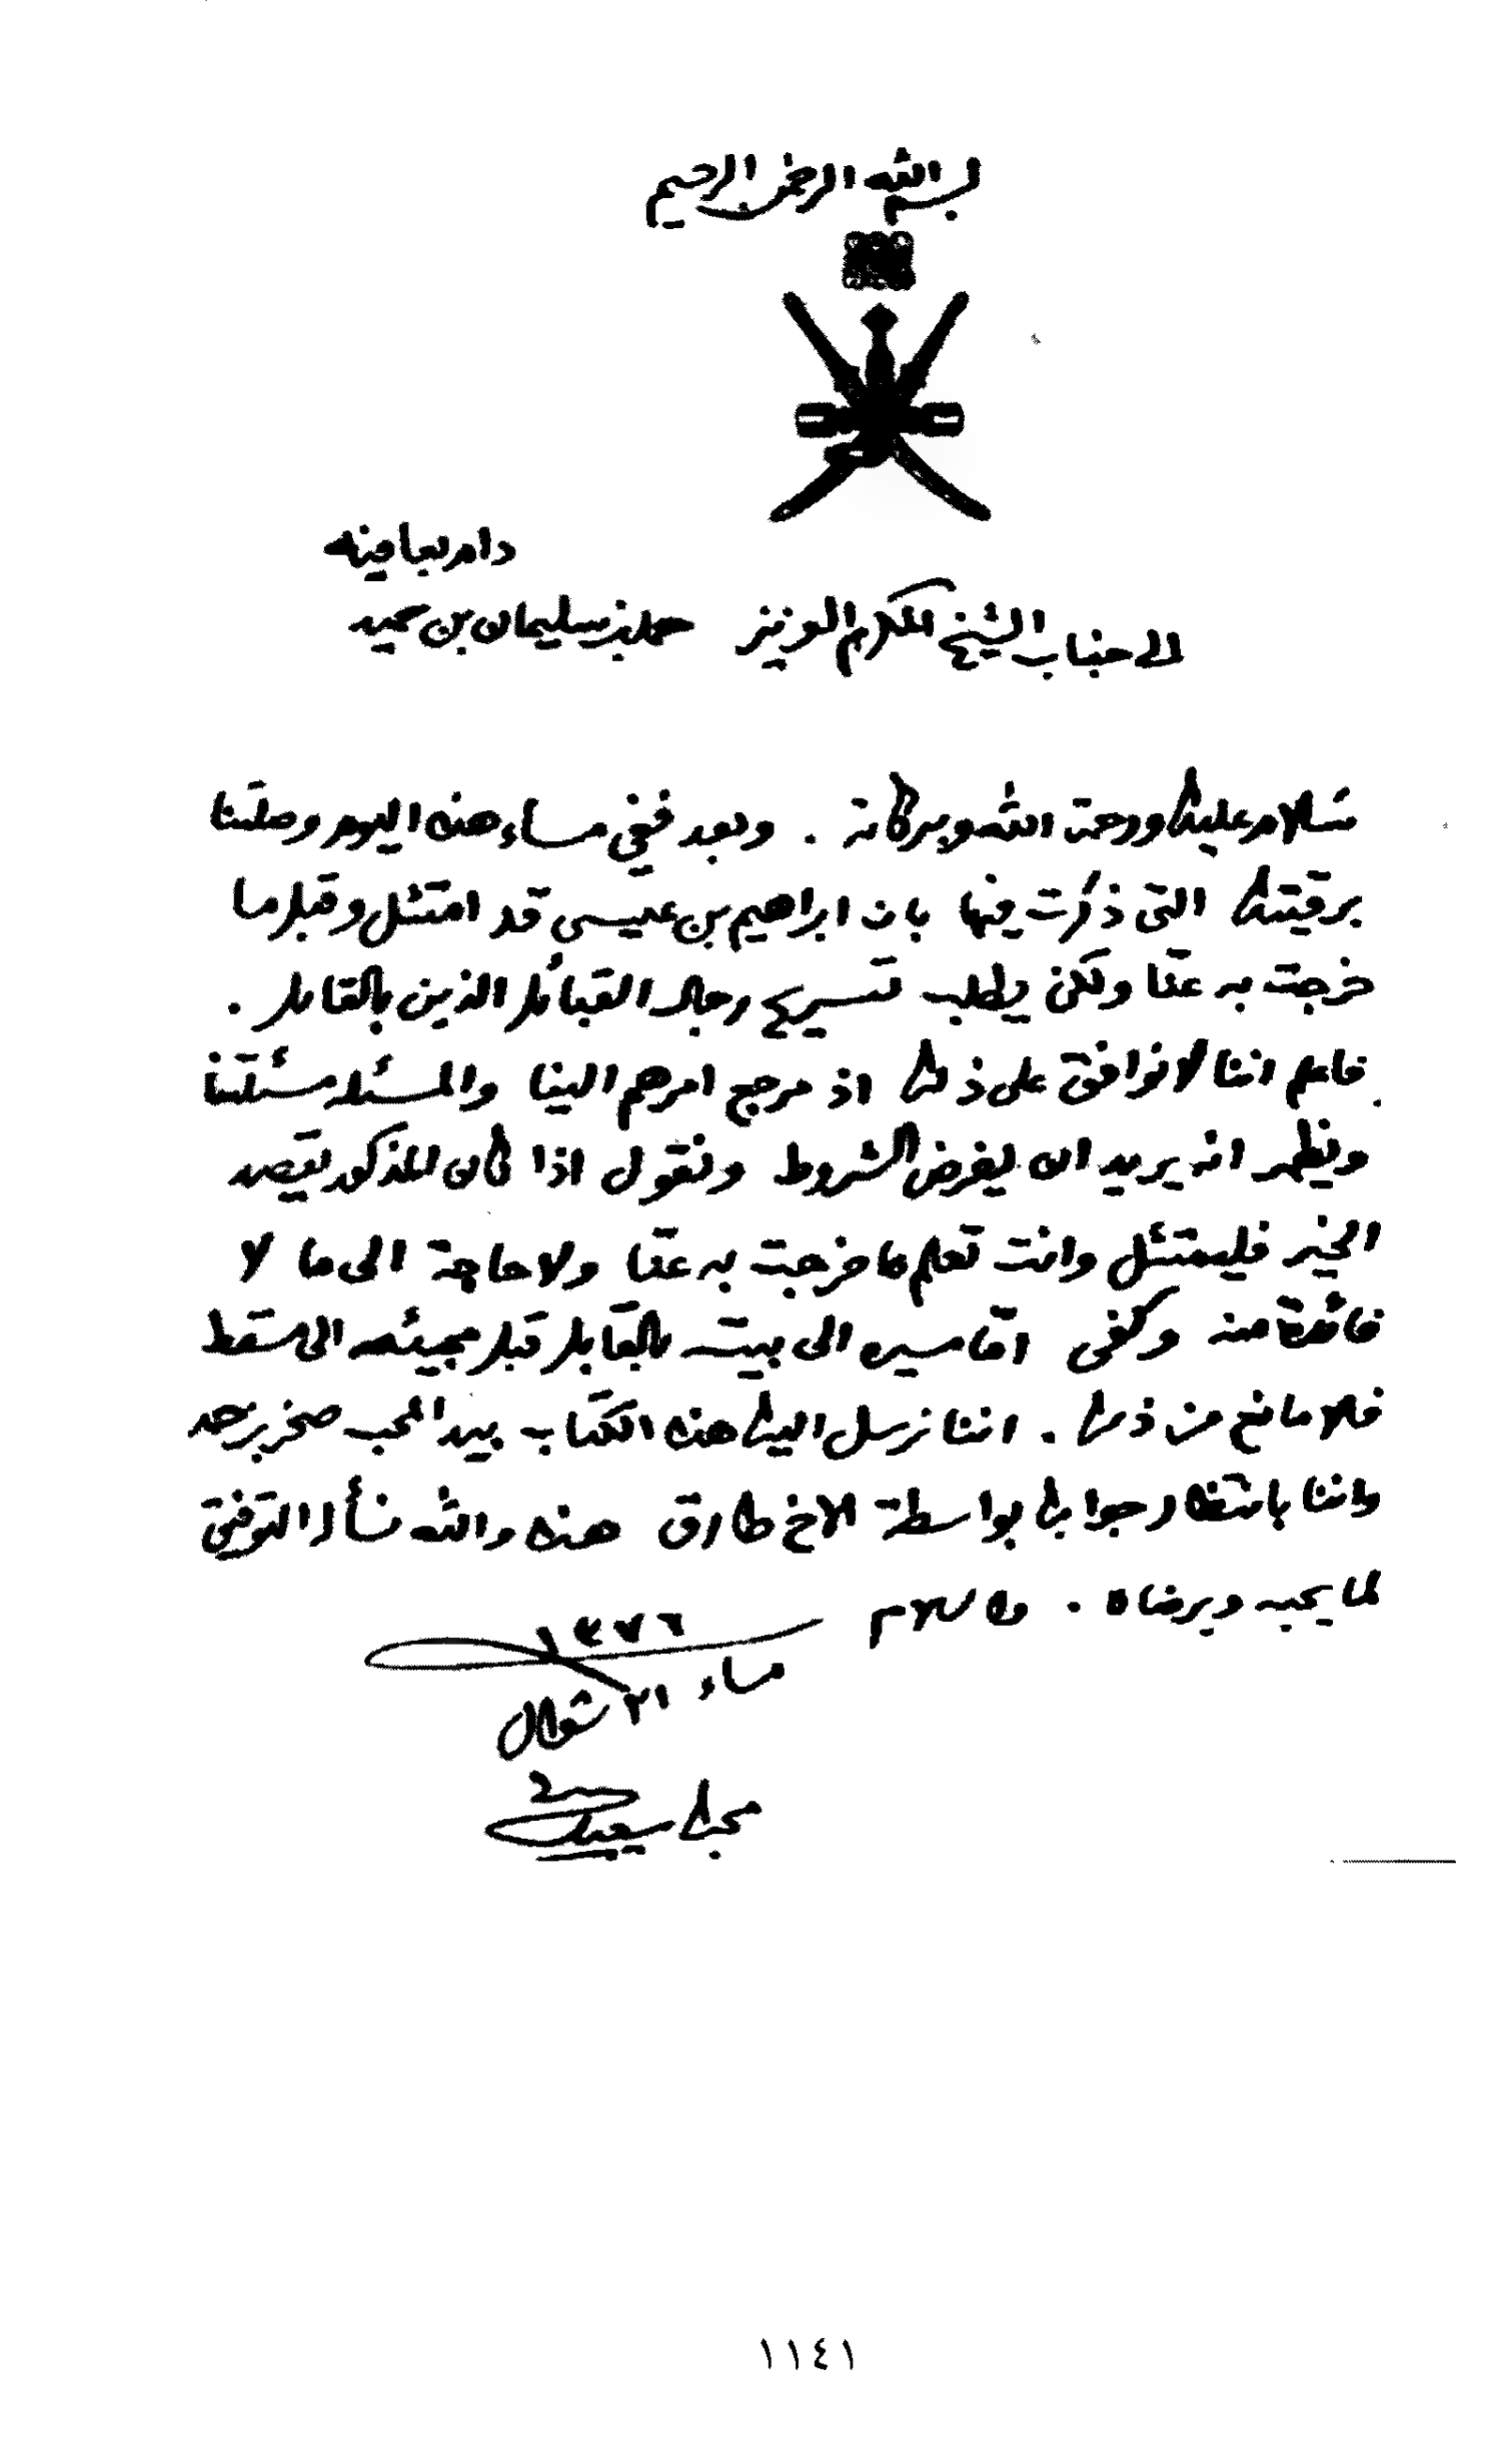 بسم الله الرحمن الرحيم
دام بعافيته
الى جناب الشيخ المكرم العزيز حمد بن سليمان بن حميد
سلام عليك ورحمة الله وبركاته . وبعد ففي مساء هذا اليوم وصلتنا
برقيتك التي ذكرت فيها بان ابراهيم بن عيسى قد امتثل وقبل ما
خرجت به عنا ولكن يطلب تسريح رجال القبائل الذين بالقابل .
فاعلم اننا لا نوافق على ذلك اذ مرجع امرهم الينا والمسئلة مسئلتنا
ويظهر انه يريد ان يفرض الشروط ونقول اذا كان المذكور يقصد
الخير فليمتثل وانت تعلم ما خرجت به عنا ولا حاجة الى ما لا
فائدة منه وكفى اما سيره الى بيته بالقابل قبل مجيئه الى مسقط
فلا مانع من ذلك . اننا نرسل اليك هذا الكتاب بيد المحب صخر بن حمد
واننا بانتظار جوابك بواسطة الاخ طارق هذا والله نسأل التوفيق
لما يحبه ويرضاه . والسلام
١٣٧٦
مساء ٢١ شوال
محبك سعيد
١١٤١